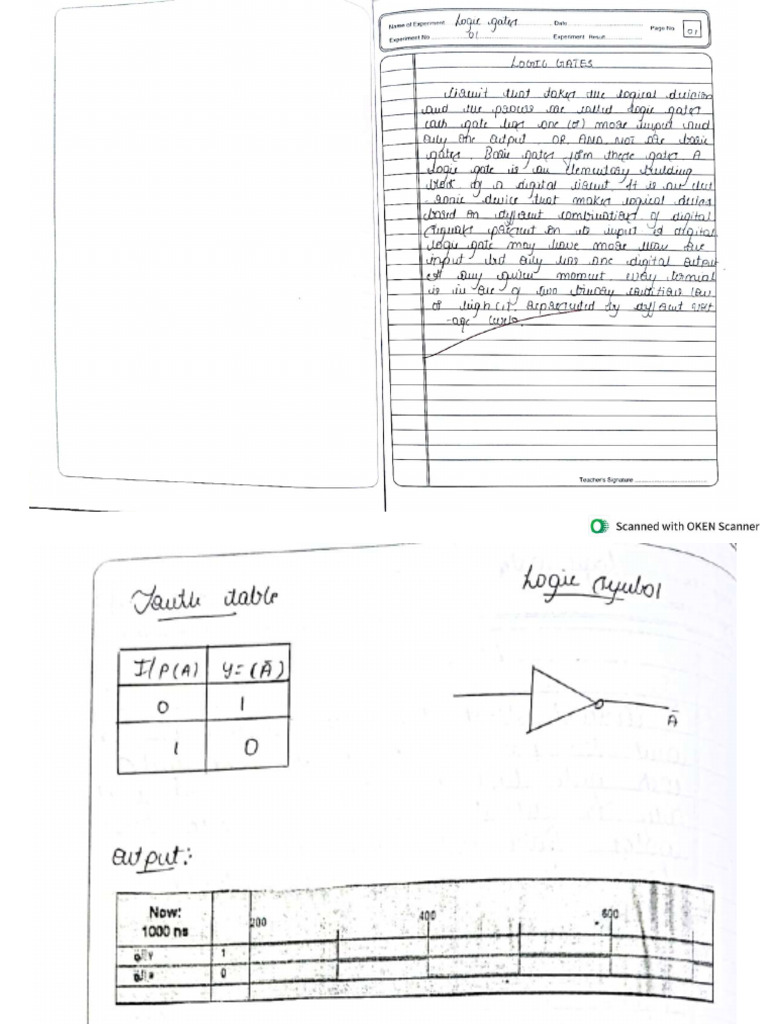 Name of Experiment Logic gates Date
Page No. 01
Experiment No. 01 Experiment Result
LOGIC GATES
Circuit that takes the logical decision
and the process are called logic gates
each gate has one (or) more input and
only one output. OR, AND, NOT are basic
gates. Basic gates form these gates. A
logic gate is an elementary building
block of a digital circuit. It is an elect
-ronic device that makes logical
based on different combinations of digital
signals present on its input. digital
logic gate may have more than
input but only has one digital output
at any given moment. every
is in one of two binary conditions low
or high (1). Represented by different volt
-age levels.
Teacher's Signature
Scanned with OKEN Scanner
Truth table
Logic symbol
I/P(A) Y=(Ā)
0 1
1 0
Ā
output:
Now:
1000 ns
200 400 600
y 1
a 0